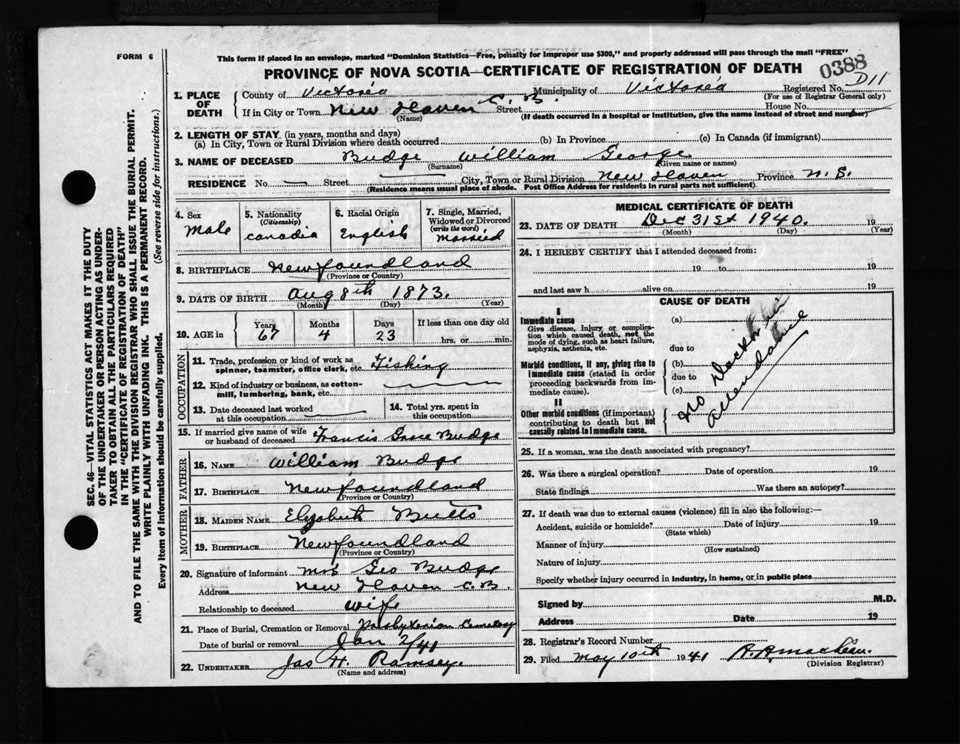 FORM 6
This form if placed in an envelope, marked "Dominion Statistics—Free, penalty for improper use $300," and properly addressed will pass through the mail "FREE"
PROVINCE OF NOVA SCOTIA—CERTIFICATE OF REGISTRATION OF DEATH
0388
D11
1. PLACE OF DEATH
County of Victoria Municipality of Victoria Registered No.
(For use of Registrar General only)
If in City or Town New Haven C. B. Street House No.
(Name) (If death occurred in a hospital or institution, give the name instead of street and number)
2. LENGTH OF STAY (in years, months and days)
(a) In City, Town or Rural Division where death occurred (b) In Province (c) In Canada (if immigrant)
3. NAME OF DECEASED Budge William George
(Surname) (Given name or names)
RESIDENCE No. — Street — City, Town or Rural Division New Haven Province N. S.
(Residence means usual place of abode. Post Office Address for residents in rural parts not sufficient)
4. Sex
Male
5. Nationality
(Citizenship)
Canadia
6. Racial Origin
English
7. Single, Married, Widowed or Divorced
(write the word)
Married
8. BIRTHPLACE Newfoundland
(Province or Country)
9. DATE OF BIRTH Aug 8th 1873.
(Month) (Day) (Year)
10. AGE in
Years Months Days If less than one day old
67 4 23 hrs. or min.
OCCUPATION
11. Trade, profession or kind of work as spinner, teamster, office clerk, etc. Fishing
12. Kind of industry or business, as cotton-mill, lumbering, bank, etc.
13. Date deceased last worked at this occupation
14. Total yrs. spent in this occupation
15. If married give name of wife or husband of deceased Francis Grace Budge
FATHER
16. NAME William Budge
17. BIRTHPLACE Newfoundland
(Province or Country)
MOTHER
18. MAIDEN NAME Elizabeth Butts
19. BIRTHPLACE Newfoundland
(Province or Country)
20. Signature of informant Mrs Geo Budge
Address New Haven C. B.
Relationship to deceased wife
21. Place of Burial, Cremation or Removal Presbyterian Cemetery
Date of burial or removal Jan 2/41
22. UNDERTAKER Jas H. Ramsey
(Name and address)
MEDICAL CERTIFICATE OF DEATH
23. DATE OF DEATH Dec 31st 1940. 19
(Month) (Day) (Year)
24. I HEREBY CERTIFY that I attended deceased from:
19 to 19
and last saw h alive on 19
CAUSE OF DEATH
I
Immediate cause
Give disease, injury or complication which caused death, not the mode of dying, such as heart failure, asphyxia, asthenia, etc.
(a)
due to
Morbid conditions, if any, giving rise to immediate cause (stated in order proceeding backwards from immediate cause).
(b)
due to
(c)
II
Other morbid conditions (if important) contributing to death but not causally related to immediate cause.
No Doctor in attendance
25. If a woman, was the death associated with pregnancy?
26. Was there a surgical operation? Date of operation 19
State findings Was there an autopsy?
27. If death was due to external causes (violence) fill in also the following:—
Accident, suicide or homicide? Date of injury 19
(State which)
Manner of injury
(How sustained)
Nature of injury
Specify whether injury occurred in industry, in home, or in public place
Signed by M.D.
Address Date 19
28. Registrar's Record Number
29. Filed May 10th 1941 R. R. MacLean.
(Division Registrar)
SEC. 46—VITAL STATISTICS ACT MAKES IT THE DUTY
OF THE UNDERTAKER OR PERSON ACTING AS UNDER-
TAKER TO OBTAIN ALL THE PARTICULARS REQUIRED
IN THE "CERTIFICATE OF REGISTRATION OF DEATH"
AND TO FILE THE SAME WITH THE DIVISION REGISTRAR WHO SHALL ISSUE THE BURIAL PERMIT.
WRITE PLAINLY WITH UNFADING INK. THIS IS A PERMANENT RECORD.
Every item of Information should be carefully supplied. (See reverse side for instructions.)